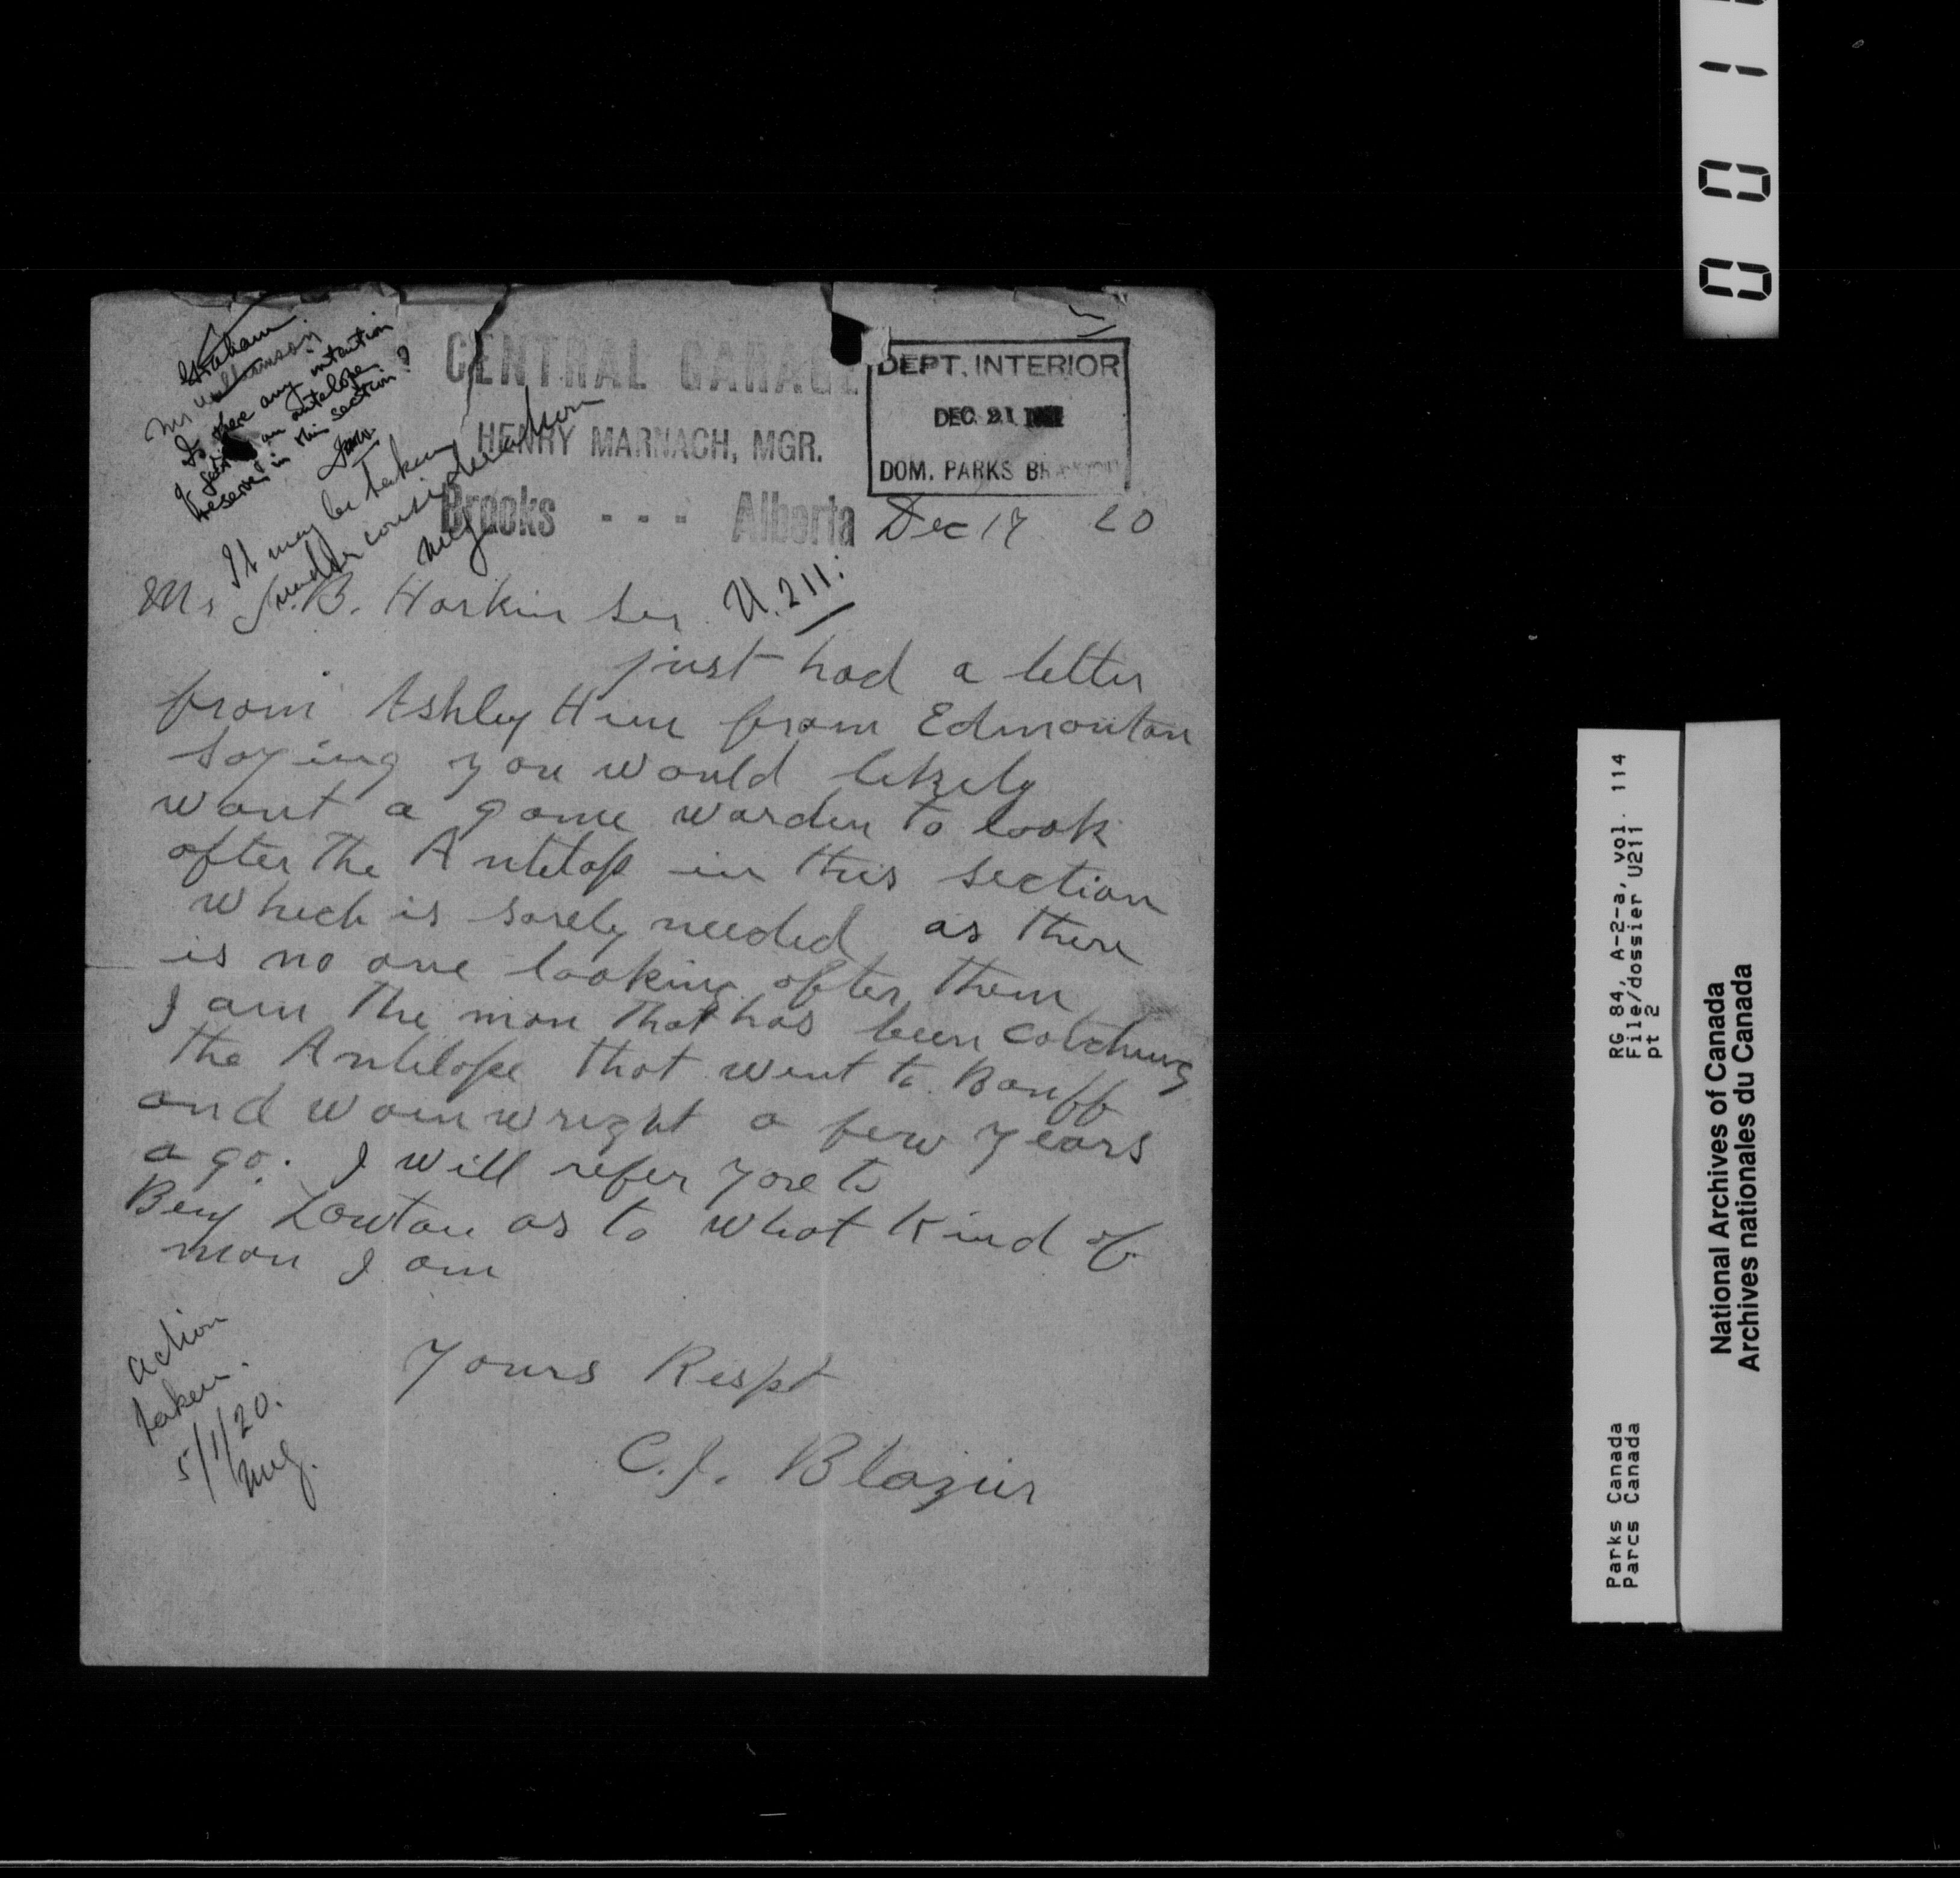 Graham
Mr Williamson
Is there any intention
of setting an antelope
reserve in this section?
It may be taken
under consideration
CENTRAL GARAGE
HENRY MARNACH, MGR.
Brooks - - - Alberta
DEPT. INTERIOR
DEC 21
DOM. PARKS BRANCH
Dec 17 20
U.211.
Mr J.B. Harkin Ser
just had a letter
from Ashley Hine from Edmonton
saying you would likely
want a game warden to look
after the Antelop in this section
which is sorely needed as there
is no one looking after them
I am the man that has been catching
the Antelope that went to Banff
and wainwright a few years
a go. I will refer you to
Benj Lawton as to what kind of
man I am
Yours Respt
C.J. Blazier
action
taken.
5/1/20.
0 0 1
RG 84, A-2-a, vol. 114
File/dossier U211
pt 2
Parks Canada
Parcs Canada
National Archives of Canada
Archives nationales du Canada